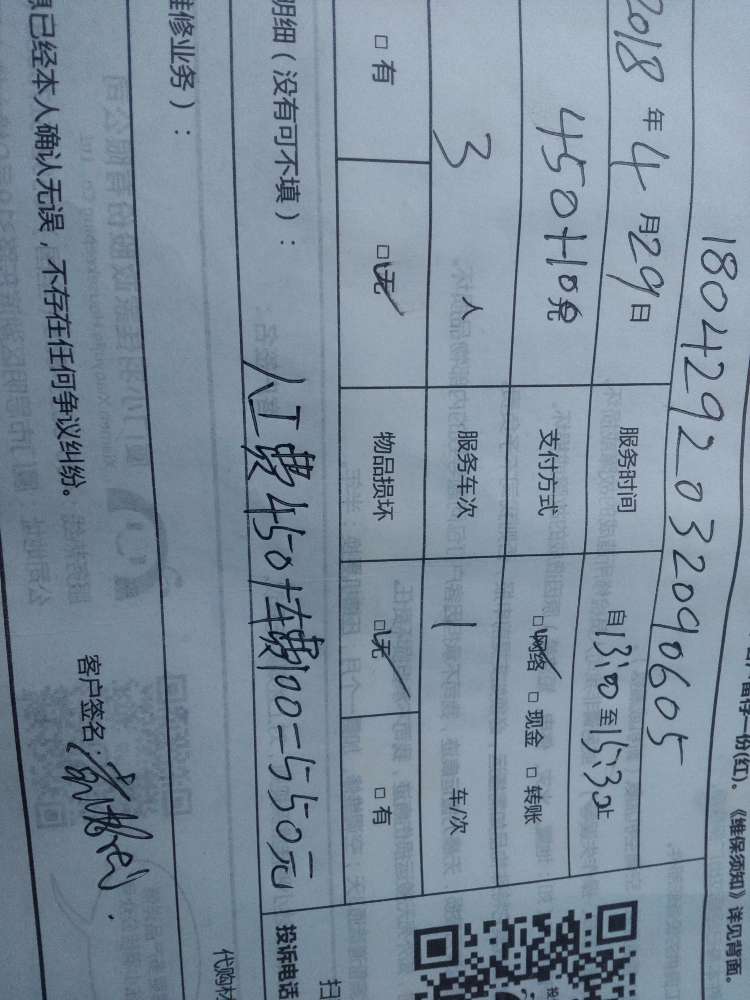 留存一份(红)。《维保须知》详见背面。
180429203209 0605
2018年4月29日 服务时间 自13:00至15:30止
450+10元 支付方式 ☑网络 □现金 □转账
3人 服务车次 1 车/次
□有 ☑无 物品损坏 ☑无 □有
明细（没有可不填）：
人工费450+车费100=550元
投诉电话
维修业务）：
代购材
已经本人确认无误，不存在任何争议纠纷。
客户签名：